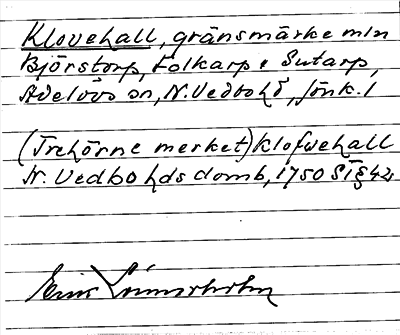 Klovehall, gränsmärke mln
Björstorp, Folkarp o Sutarp,
Adelövs sn, N. Vedbo hd, Jönk. l
(Trehörne merket) Klofwehall
N. Vedbo hds domb, 1750 ST § 42
Eric